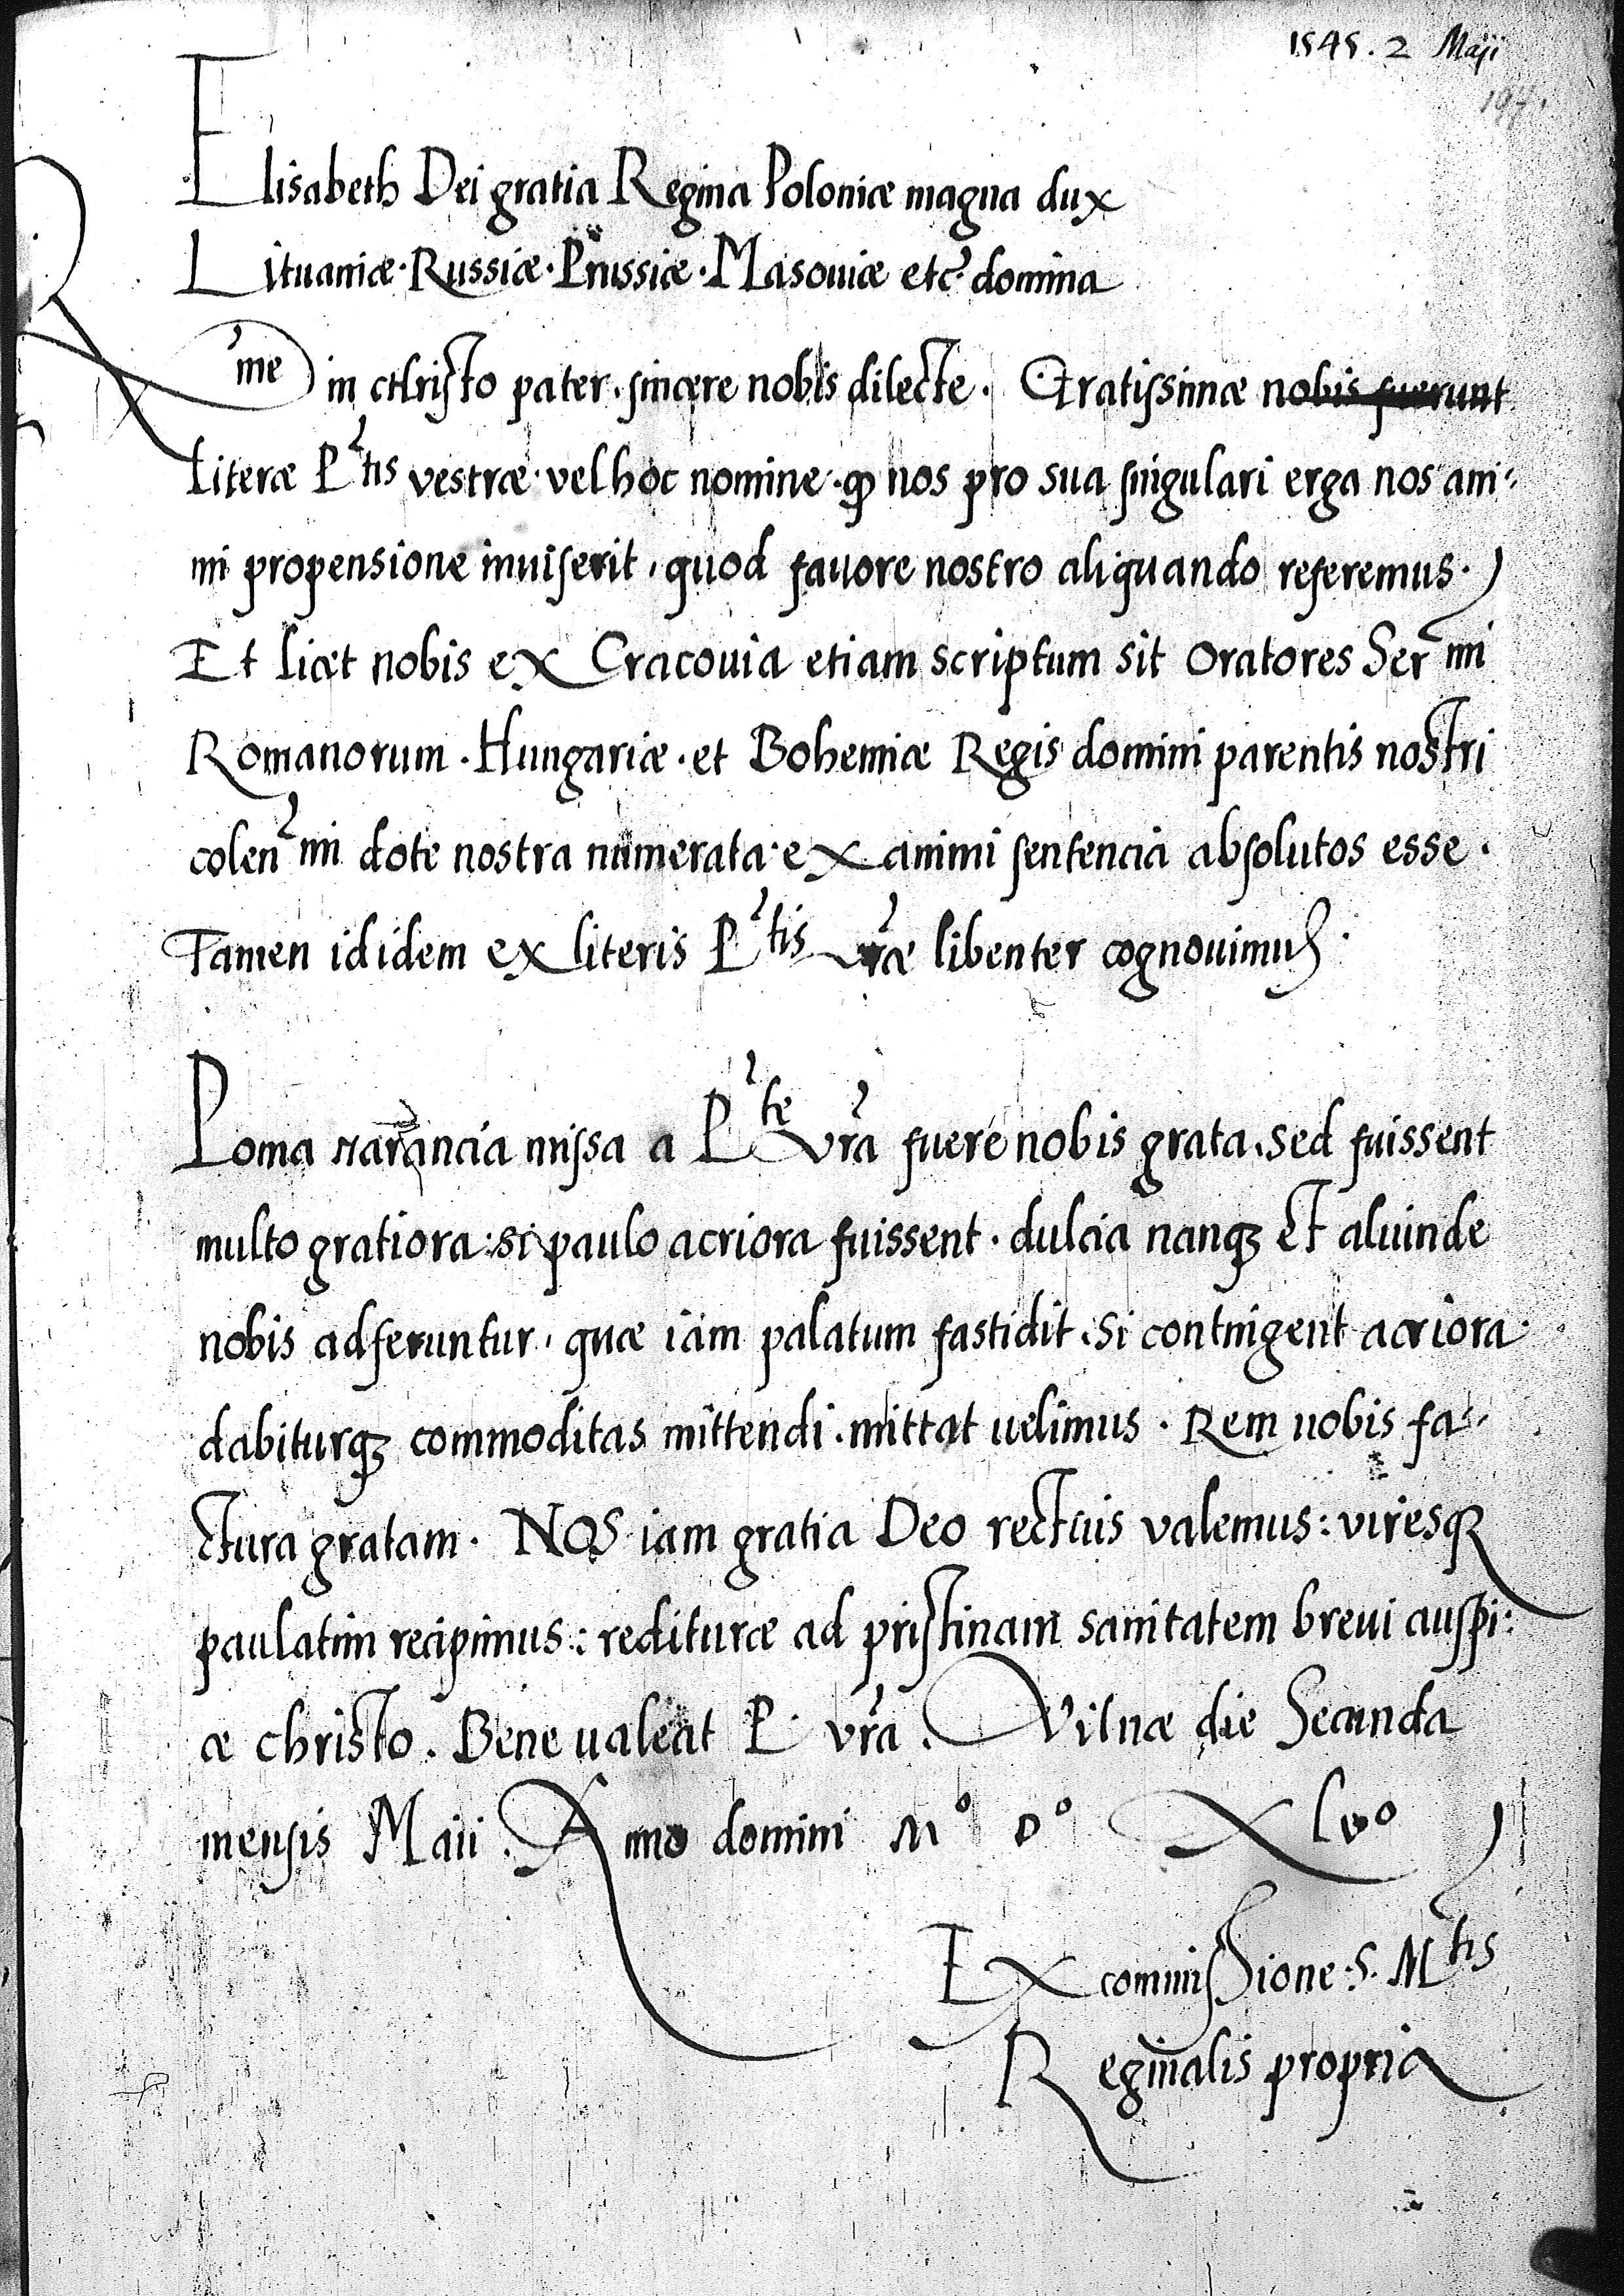 1545. 2 Maji
197.
Elisabeth Dei gratia Regina Poloniæ magna dux
Lituaniæ. Russiæ. Prussiæ. Masouiæ etc. domina
Rme in christo pater. sincere nobis dilecte. Gratissimæ nobis fuerunt
literæ Ptis vestræ. vel hoc nomine. qp nos pro sua singulari erga nos ani:
mi propensione inuiserit, quod fauore nostro aliquando referemus.
Et licet nobis ex Cracouia etiam scriptum sit Oratores Sermi
Romanorum. Hungariæ. et Bohemiæ Regis domini parentis nostri
colenmi dote nostra numerata. ex animi sentencia absolutos esse.
Tamen id idem ex literis Ptis vræ libenter cognouimus.
Poma narancia missa a Pte vra fuere nobis grata. sed fuissent
multo gratiora: si paulo acriora fuissent. dulcia nanqз et aliunde
nobis adferuntur, quæ iam palatum fastidit. Si contingent acriora.
dabiturqз commoditas mittendi. mittat uelimus. Rem nobis fa:
ctura gratam. Nos iam gratia Deo rectius valemus: viresqз
paulatim recipimus: redituræ ad pristinam sanitatem breui auspi:
ce christo. Bene ualeat P. vra. Vilnæ die Secunda
mensis Maii. Anno domini Mo Do Xlvo
Ex commissione. S. Mtis
Reginalis propria